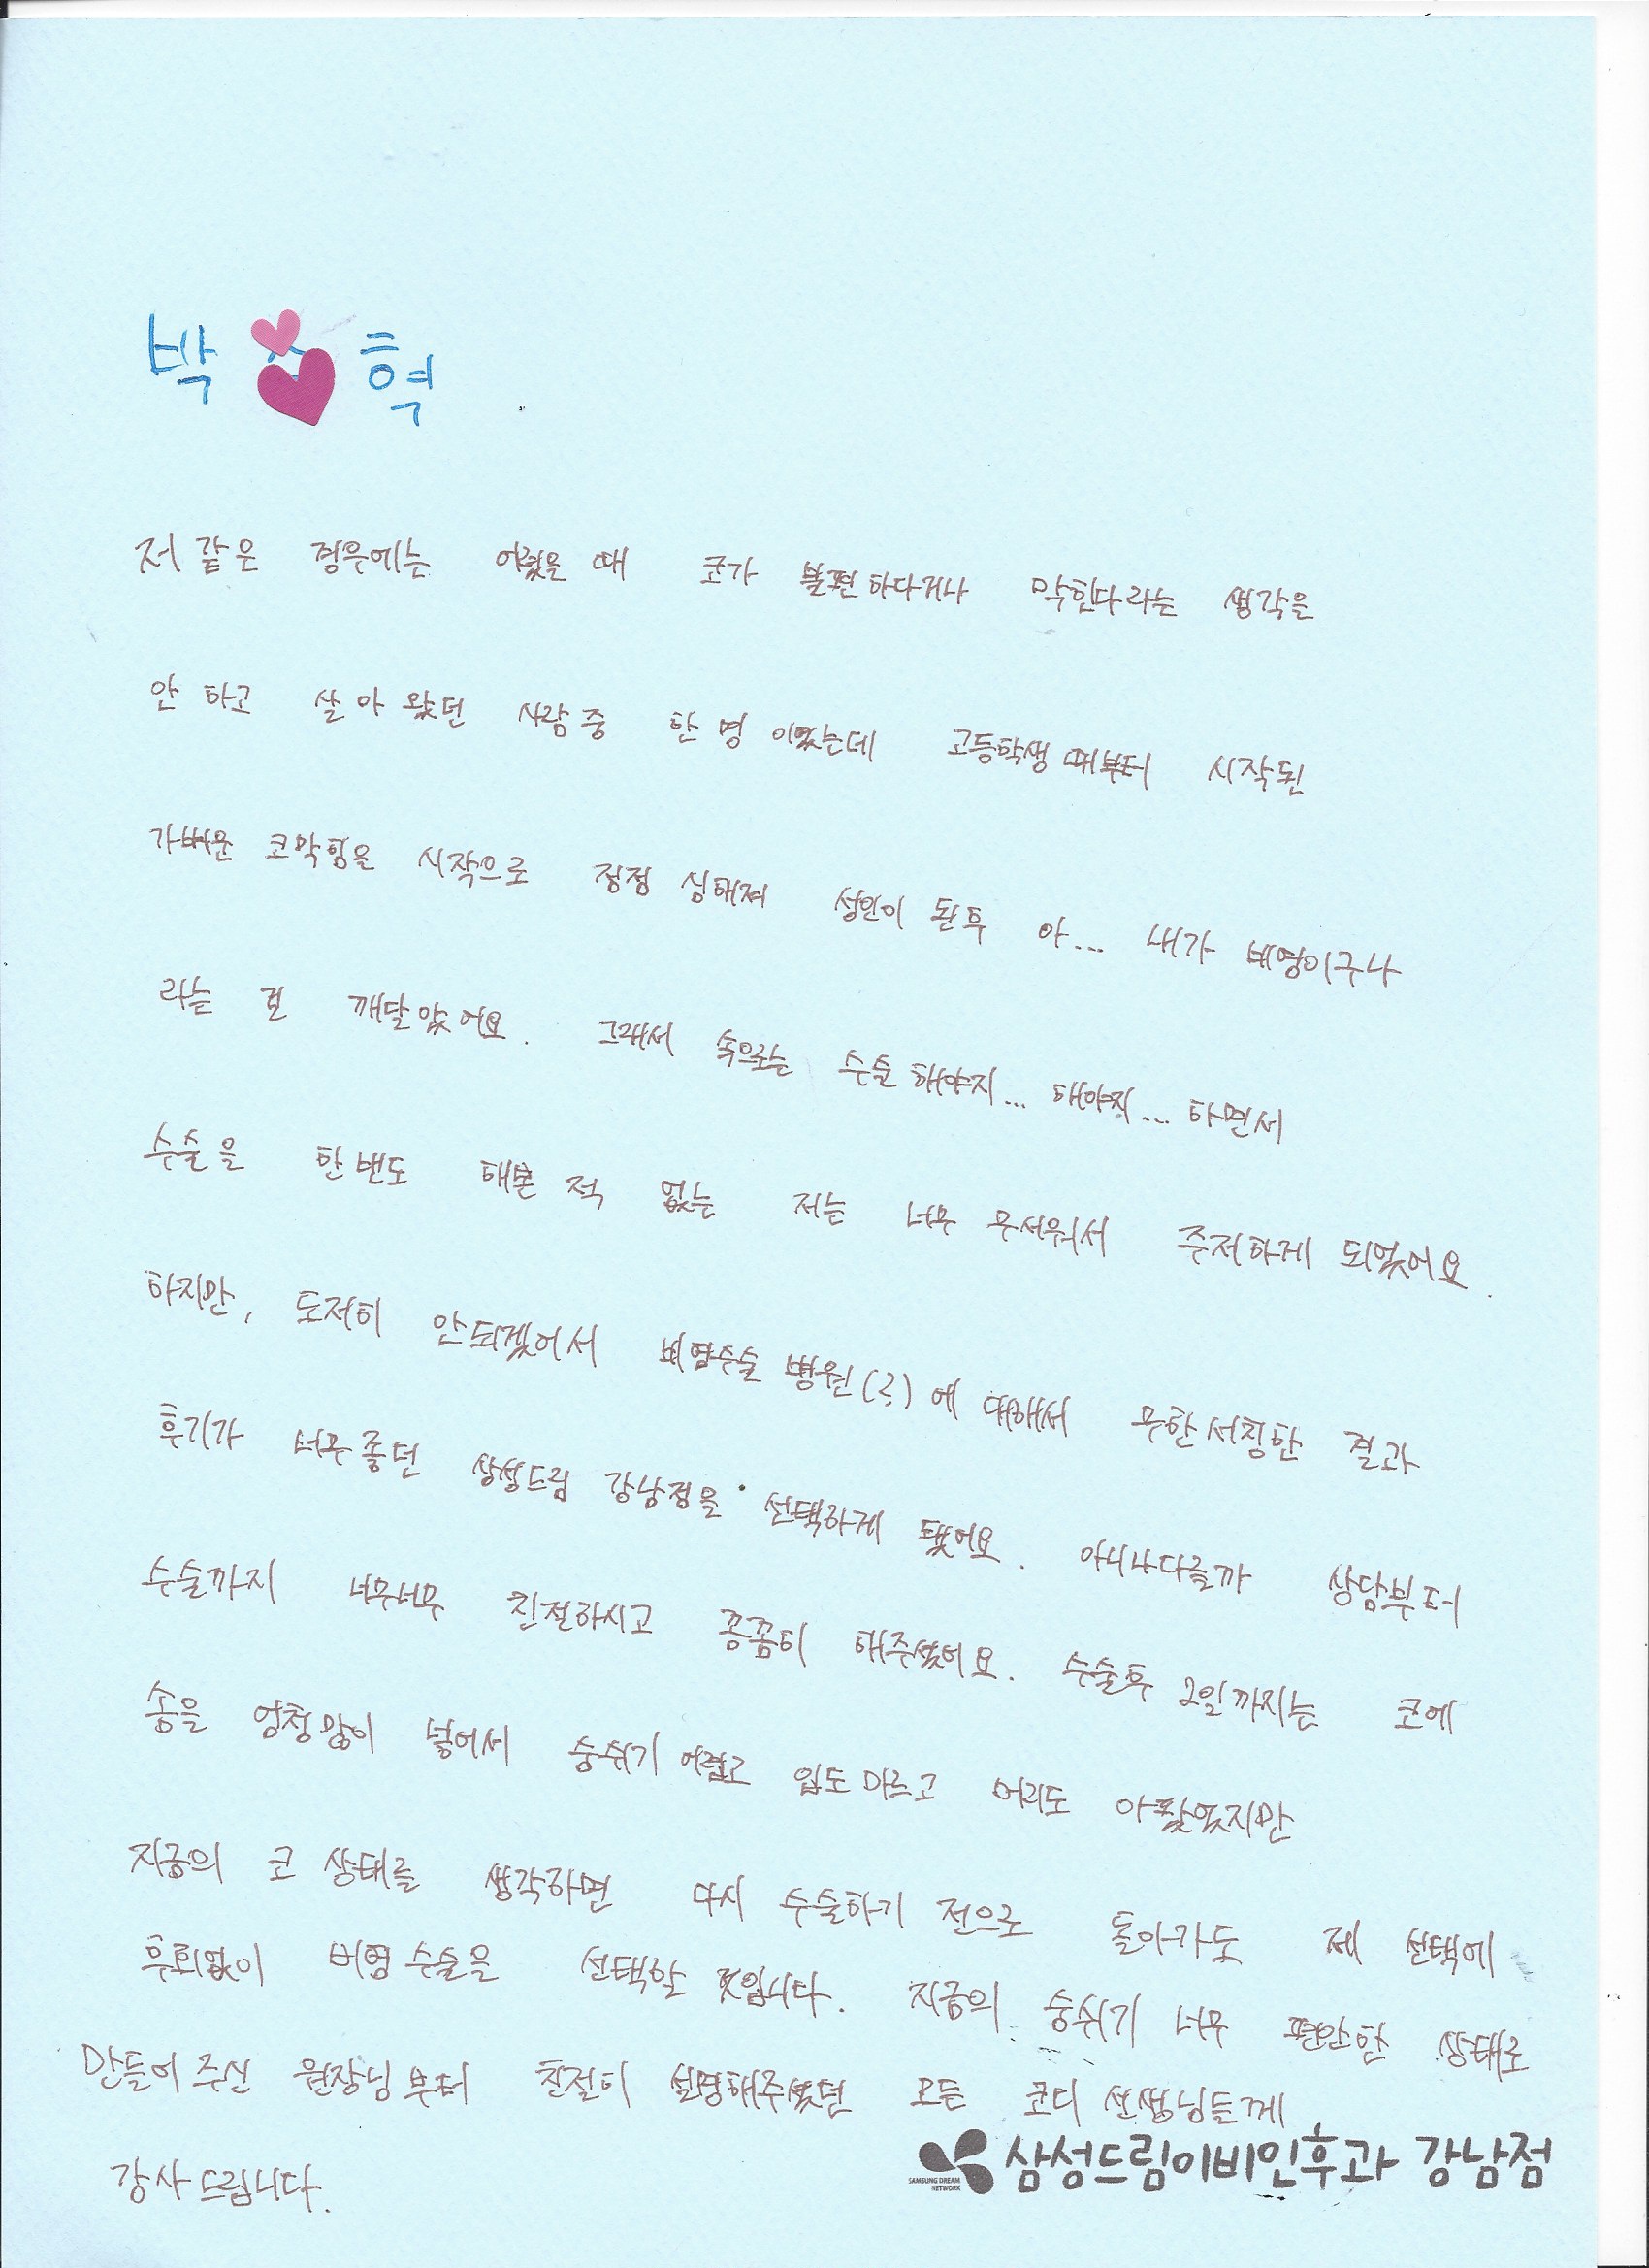 박 혁
저 같은 경우에는 어렸을 때 코가 불편하다거나 막힌다라는 생각을
안 하고 살아 왔던 사람 중 한 명 이었는데 고등학생 때부터 시작된
가벼운 코막힘을 시작으로 점점 심해져 성인이 된후 아... 내가 비염이구나
라는 걸 깨달았어요. 그래서 속으로는 수술해야지... 해야지... 하면서
수술을 한번도 해본 적 없는 저는 너무 무서워서 주저하게 되었어요.
하지만, 도저히 안되겠어서 비염수술 병원(?)에 대해서 무한서칭한 결과
후기가 너무좋던 삼성드림 강남점을 선택하게 됐어요. 아니나다를까 상담부터
수술까지 너무너무 친절하시고 꼼꼼히 해주셨어요. 수술후 2일까지는 코에
솜을 엄청많이 넣어서 숨쉬기 어렵고 입도 마르고 머리도 아팠었지만
지금의 코 상태를 생각하면 다시 수술하기 전으로 돌아가도 제 선택에
후회없이 비염 수술을 선택할 것입니다. 지금의 숨쉬기 너무 편안한 상태로
만들어 주신 원장님부터 친절히 설명해주셨던 모든 코디 선생님들께
감사드립니다.
SAMSUNG DREAM NETWORK 삼성드림이비인후과 강남점